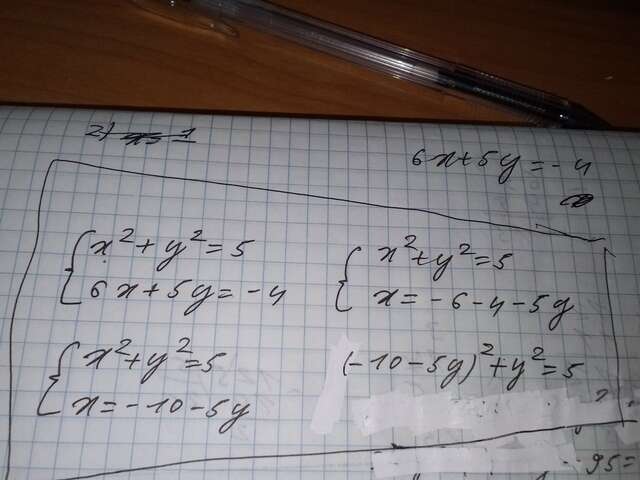 2)
6x+5y=-4
{x²+y²=5
6x+5y=-4
{x²+y²=5
x=-6-4-5y
{x²+y²=5
x=-10-5y
(-10-5y)²+y²=5
95=